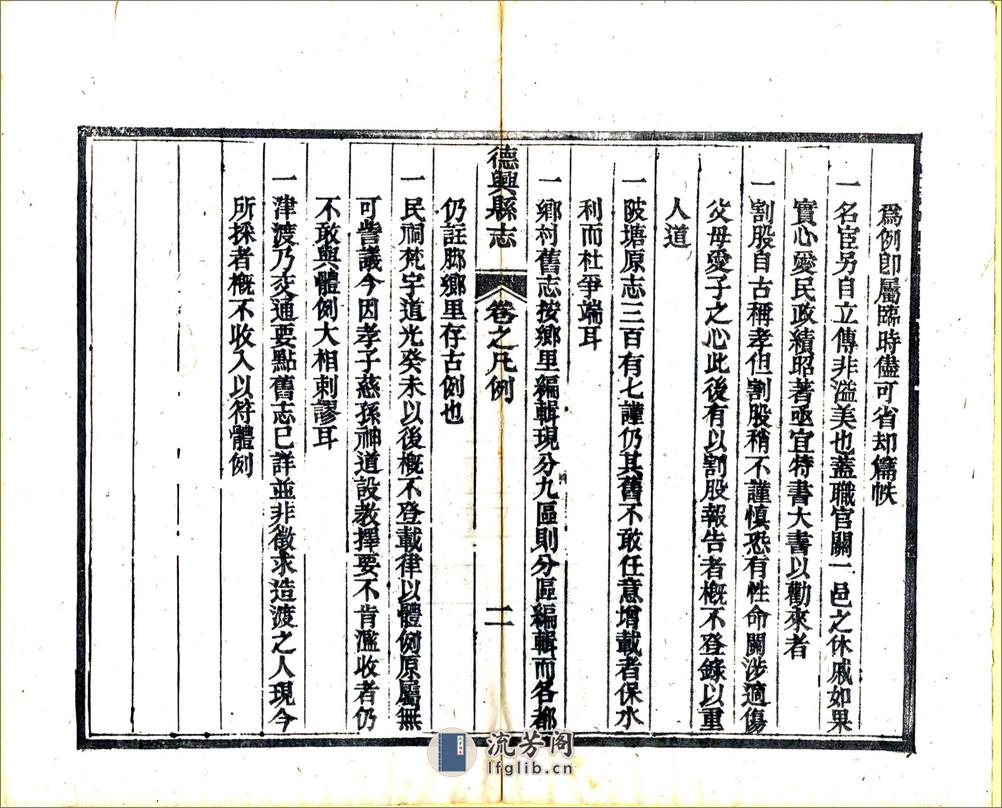 爲例卽屬臨時儘可省却篇帙
一名宦另自立傳非溢美也蓋職官關一邑之休戚如果
實心愛民政績昭著亟宜特書大書以勸來者
一割股自古稱孝但割股稍不謹慎恐有性命關涉適傷
父母愛子之心此後有以割股報告者槪不登錄以重
人道
一陂塘原志三百有七謹仍其舊不敢任意增載者保水
利而杜爭端耳
一鄉村舊志按鄉里編輯現分九區則分區編輯而各都
德興縣志
卷之凡例
二
仍註腳鄉里存古例也
一民祠梵宇道光癸未以後槪不登載律以體例原屬無
可訾議今因孝子慈孫神道設教擇要不肯濫收者仍
不敢與體例大相剌謬耳
一津渡乃交通要點舊志已詳並非徵求造渡之人現今
所採者槪不收入以符體例
流芳阁
lfglib.cn